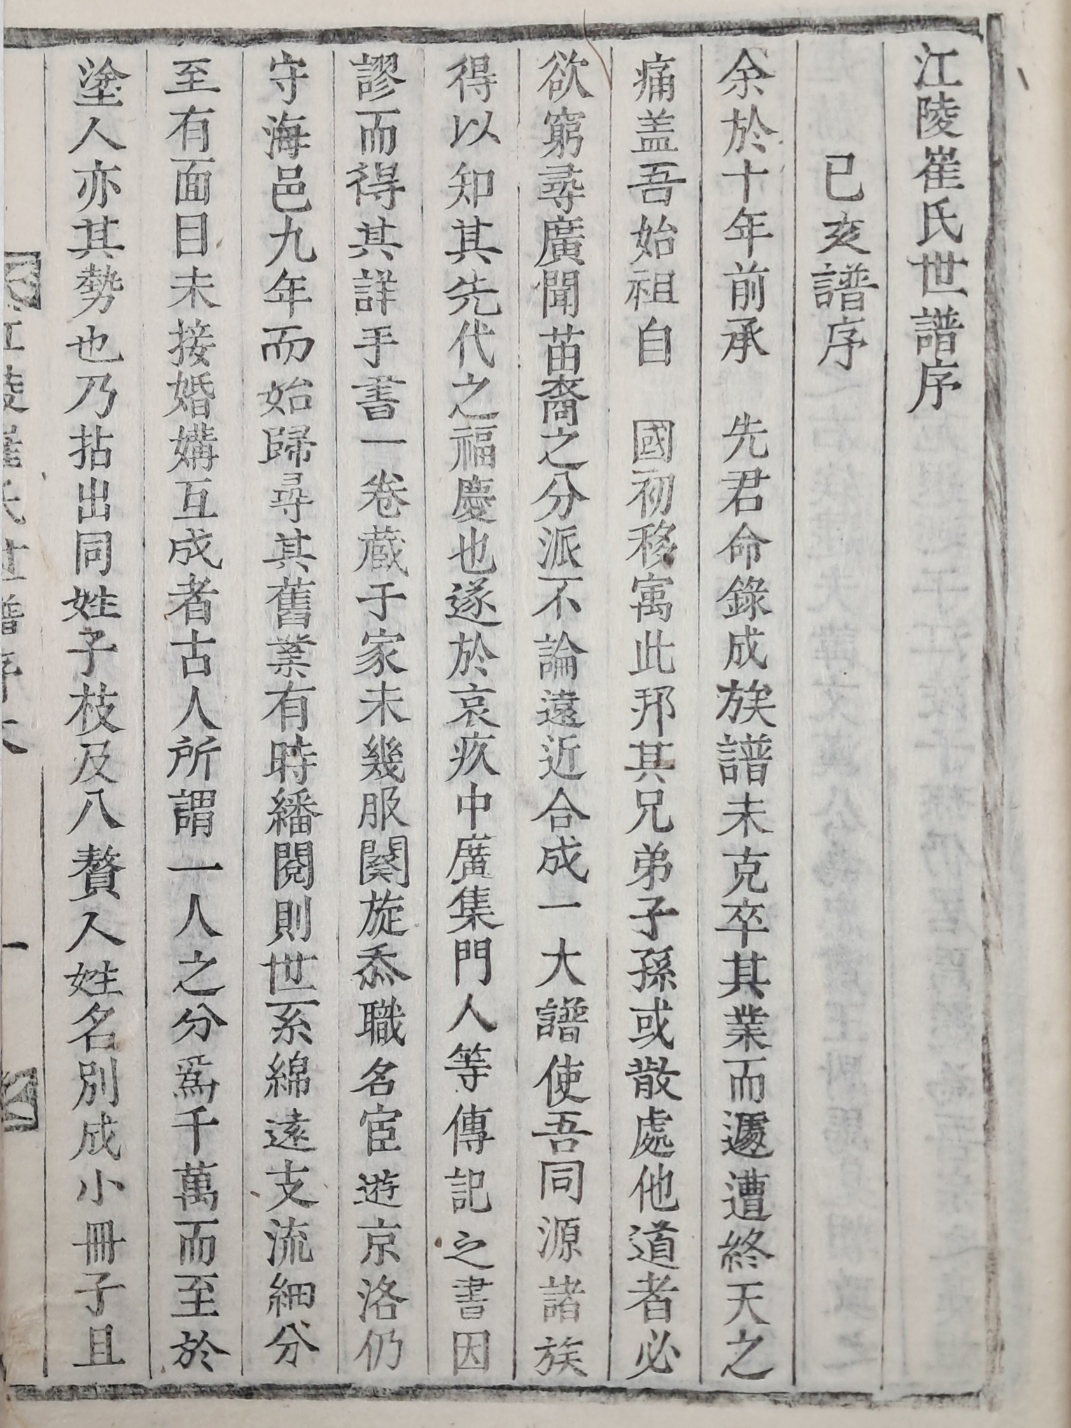 江陵崔氏世譜序
已亥譜序
余於十年前承　先君命錄成族譜未克卒其業而遽遭終天之
痛盖吾始祖自　國初移寓此邦其兄弟子孫或散處他道者必
欲窮尋廣聞苗裔之分派不論遠近合成一大譜使吾同源諸族
得以知其先代之福慶也遂於哀疚中廣集門人等傳記之書因
謬而得其詳手書一卷藏于家未幾服闋旋忝職名宦遊京洛仍
守海邑九年而始歸尋其舊業有時繙閱則世系綿遠支流細分
至有面目未接婚媾互成者古人所謂一人之分爲千萬而至於
塗人亦其勢也乃拈出同姓子枝及八贅人姓名別成小冊子且
江陵崔氏世譜序
一